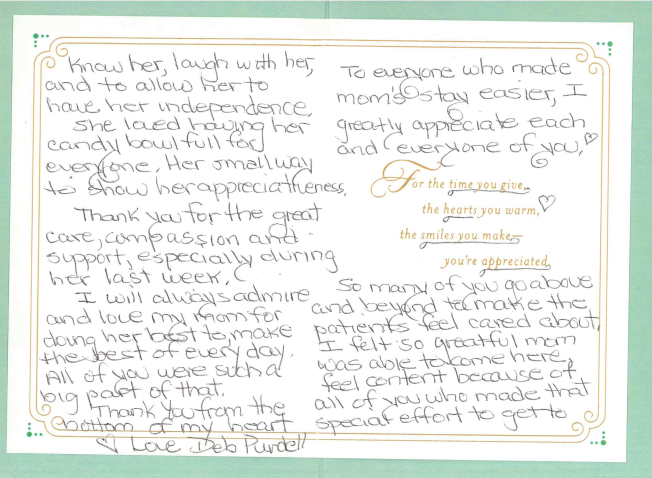 To everyone who made
mom's stay easier, I
greatly appreciate each
and everyone of you. ♡
For the time you give,
the hearts you warm, ♡
the smiles you make—
you're appreciated.
So many of you go above
and beyond to make the
patients feel cared about.
I felt so greatful mom
was able to come here,
feel content because of
all of you who made that
special effort to get to
Know her, laugh with her,
and to allow her to
have her independence.
She loved having her
candy bowl full for
everyone. Her small way
to show her appreciativeness.
Thank you for the great
care, compassion and
support, especially during
her last week.
I will always admire
and love my mom for
doing her best to make
the best of every day.
All of you were such a
big part of that.
Thank you from the
bottom of my heart
♡ Love Deb Purdell